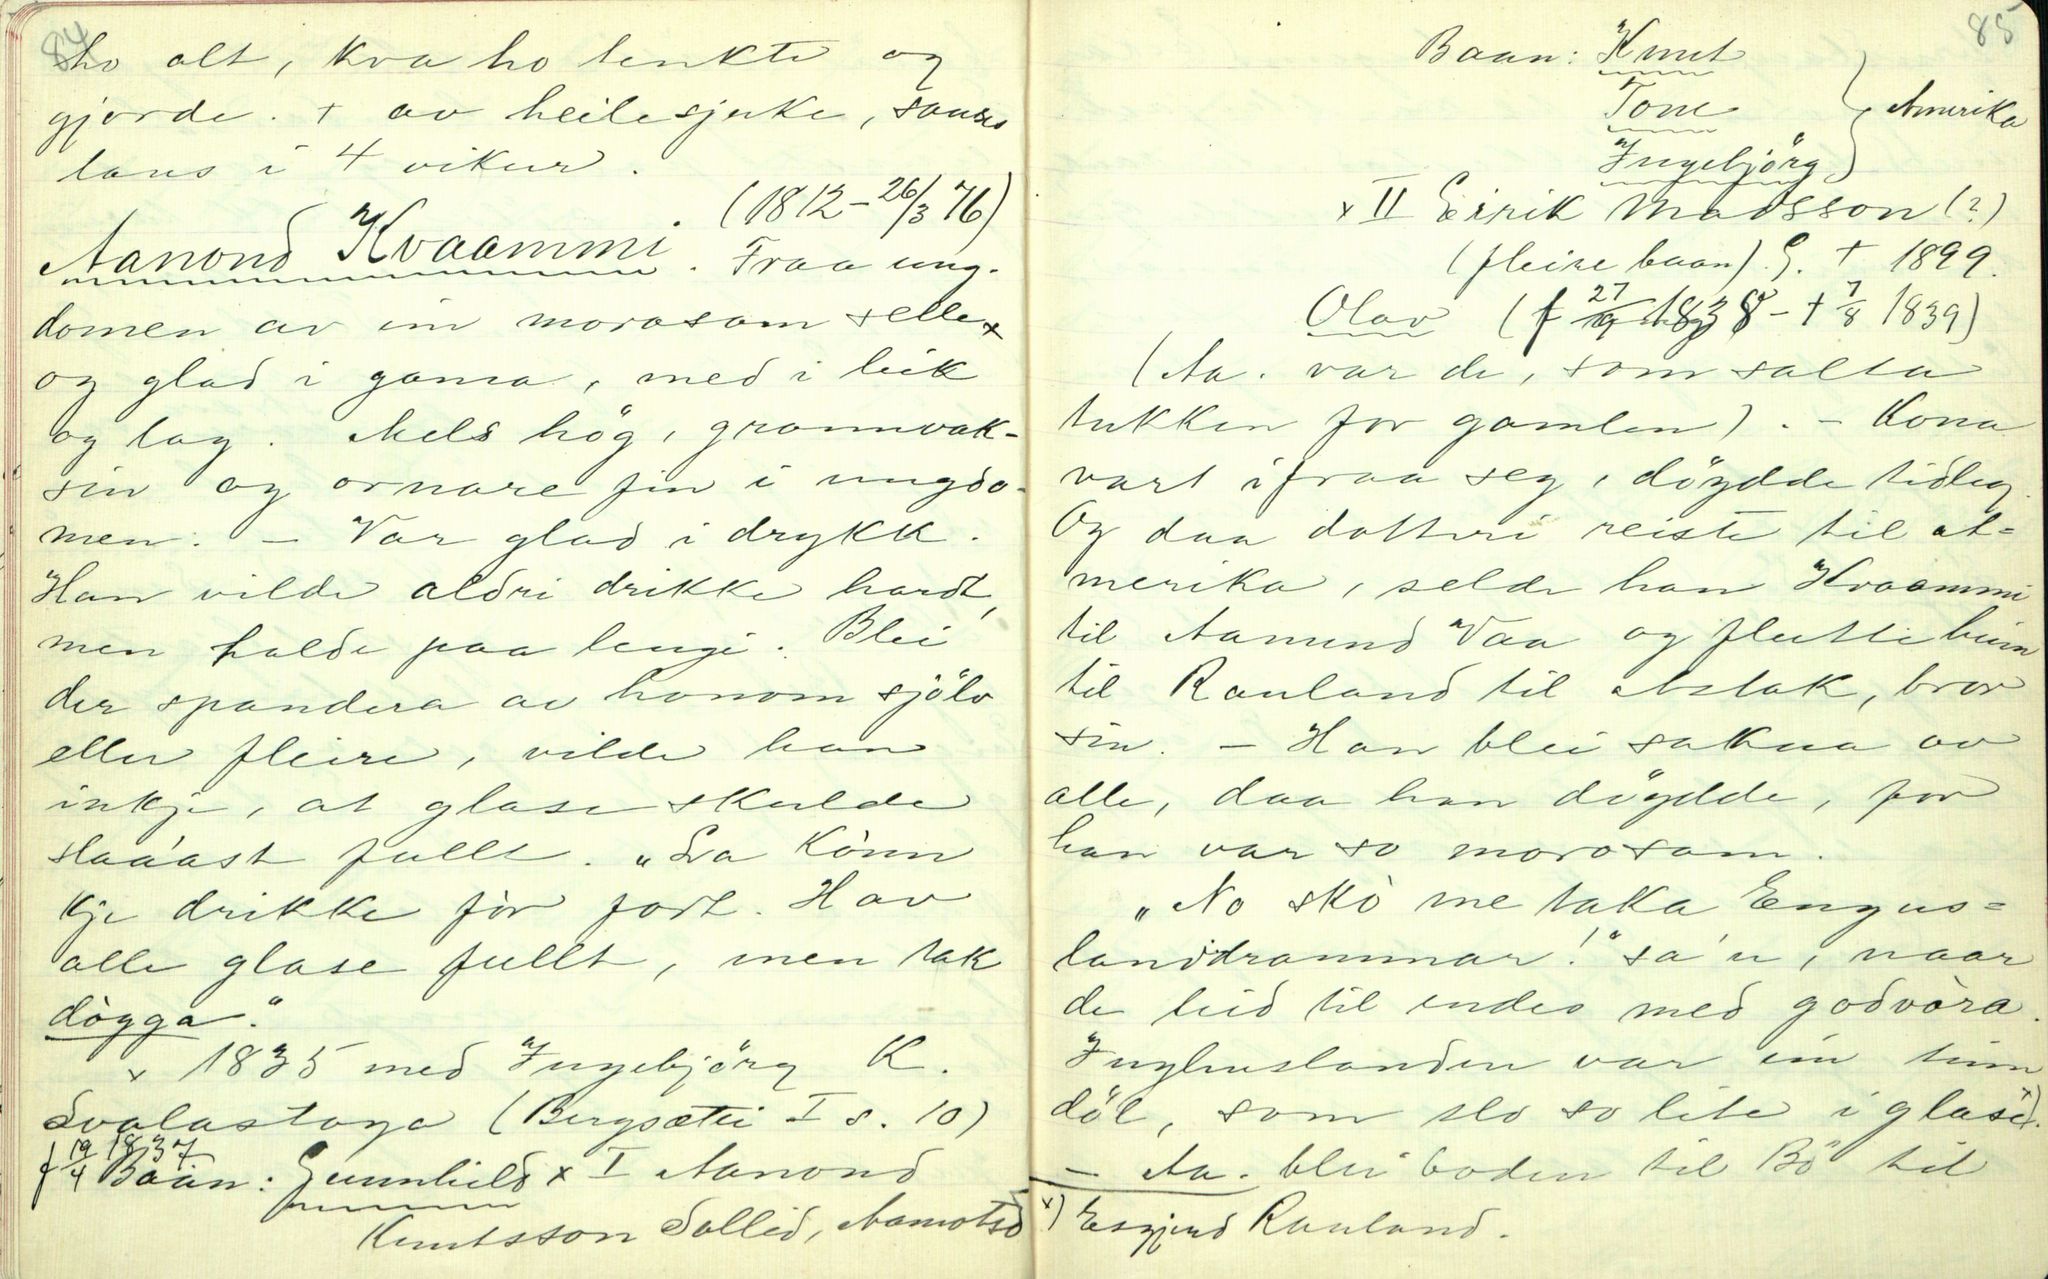 84
ho alt, kva ho tenkte og
gjorde. + av heilesjuke, sans
laus i 4 vikur.
(1812-26/3 76)
Aanond Kvaammi. Fraa ung-
domen av ein morosam selle
og glad i gama, med i leik
og lag. Mels hög, grannvak-
sin og ovnare fin i ungdo-
men. - Var glad i drykk.
Han vilde aldri drikke hardt,
men halde paa lengi. Blei
der spandera av honom sjölv
eller fleire, vilde han
inkje, at glase skulde
slaa'ast fullt. „La kònn
kje drikke fòr fort. Hav
alle glase fullt, men tak
dògga".
x 1835 med Ingebjörg K.
Svalastoga (Bergsætti I s. 10)
f 19/4 1837
Baan: Gunnhild x I Aanond
Knutsson Sallid, Aamotsd
85
Baan: Knut
Tone
Ingebjörg
Amerika
x II Eirik Madsson (?)
(fleire baan) G. + 1899.
Olav (f 27/9 1838 - + 7/8 1839)
(Aa. var de, som salta
tukken for gamlen). - Kona
vart ifraa seg, döydde tidleg.
Og daa dotteri reiste til A-
merika, selde han Kvaammi
til Aamund Vaa og flutte heim
til Rauland til Aslak, bror
sin. - Han blei sakna av
alle, daa han döydde, for
han var so morosam.
„No skò me taka Engus-
landdrammar!" sa'n, naar
de leid til endes med godvòra.
Inghuslanden var ein tinn
döl, som slo so lite i glase x).
- Aa. blei boden til Bö til
x) Esgjerd Rauland.